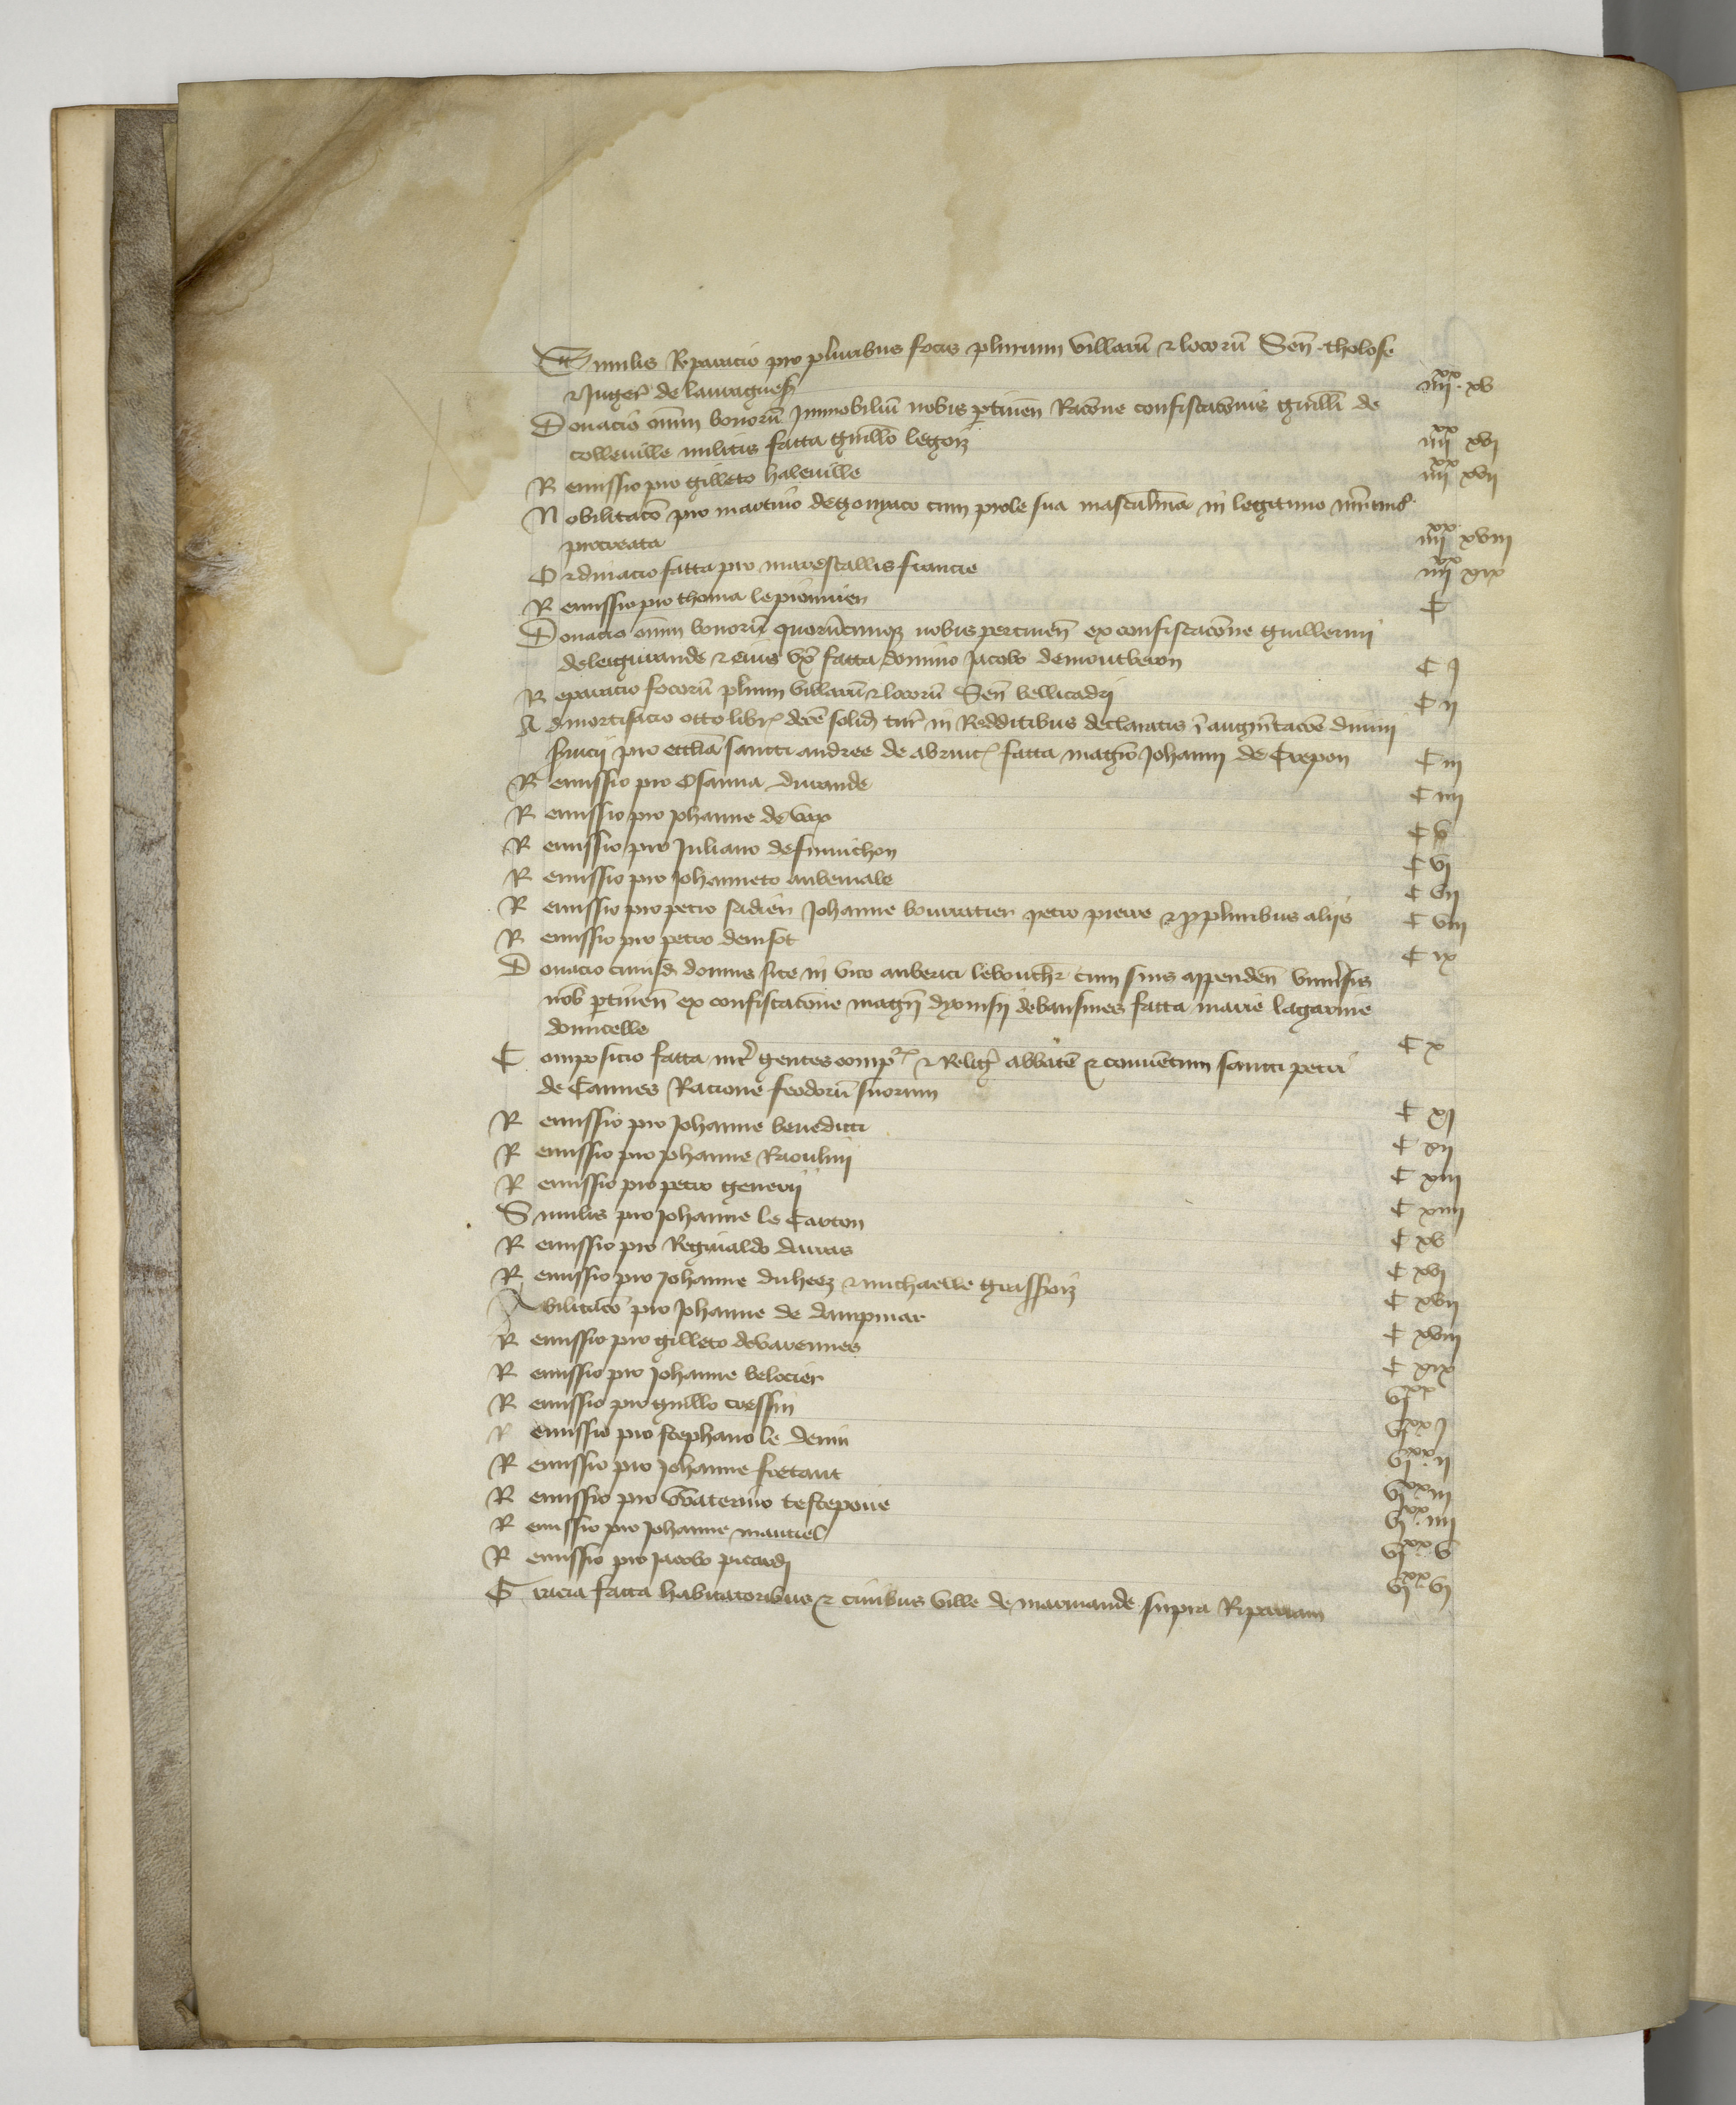 Similis Reparacio pro pluribus focis plurium villarū & locorū Sen̄ tholose
& Juger̄ de lauragues̄ iiiixx xv
Donacio om̄iū bonorū Immobiliū nobis p̄tinen̄ Racōne confiscacōnis guill̄i de
colleville militis facta guill̄o legoiz iiiixx xvi
Remissio pro gilleto haleville iiiixx xvii
Nobilitacō pro martino de gomaco cum prole sua masculina in legitimo
procreata iiiixx xviii
Ordinacio facta pro marescallis francie iiiixx xix
Remissio pro thoma le pionnien C
Donacio om̄iū bonorū quorūcumqȝ nobis pertinen̄ ex confiscacōne guillermi
de leiguirande & eius ux̄ facta domino Jacobo de montberon C j
Reparacio focorū pl̄ium villarū & locorū Sen̄ bellicadri C ii
Admortisacio octo libr̄ decē solid̄ tur̄ in Redditibus declaratis ī augm̄tacōe divini
servicii pro eccl̄ia sancti andree de abrinc̄ facta magr̄o Johanni de Crepon C iii
Remissio pro Osanna durande C iiii
Remissio pro Johanne de vax C v
Remissio pro Juliano de finuichon C vi
Remissio pro Johanneto aubemale C vii
Remissio pro petro sadien Johanne bourratier petro pierre & p̄ pluribus aliis C viii
Remissio pro petro denisot C ix
Donacio cuiusd̄ domus site in vico auberici le bouch̄r cum suis appenden̄ univ̄sis
nob̄ p̄tinen̄ ex confiscacōne magr̄i dyonisii de bausmes facta marie la gavine
domicelle C x
Composicio facta int̄ gentes comp̄ & Relig̃ abbatē & conventum sancti petri
de Cannes Racione feodorū suorum C xi
Remissio pro Johanne benedicti C xii
Remissio pro Johanne Raoulini C xiii
Remissio pro petro generii C xiiii
Similis pro Johanne le Carton C xv
Remissio pro Reginaldo darras C xvi
Remissio pro Johanne du heez & michaelle grassoiz C xvii
Abilitacō pro Johanne de dampmar C xviii
Remissio pro gilleto de varennes C xix
Remissio pro Johanne velocier vixx
Remissio pro guill̄o cressin vixx j
Remissio pro stephano le demi vixx ii
Remissio pro Johanne foetant vixx iii
Remissio pro Waterino testepoue vixx iiii
Remissio pro Johanne mautiel vixx v
Remissio pro Jacobo picardi vixx vi
Gracia facta habitatoribus & civibus ville de marmande supra Ripariam